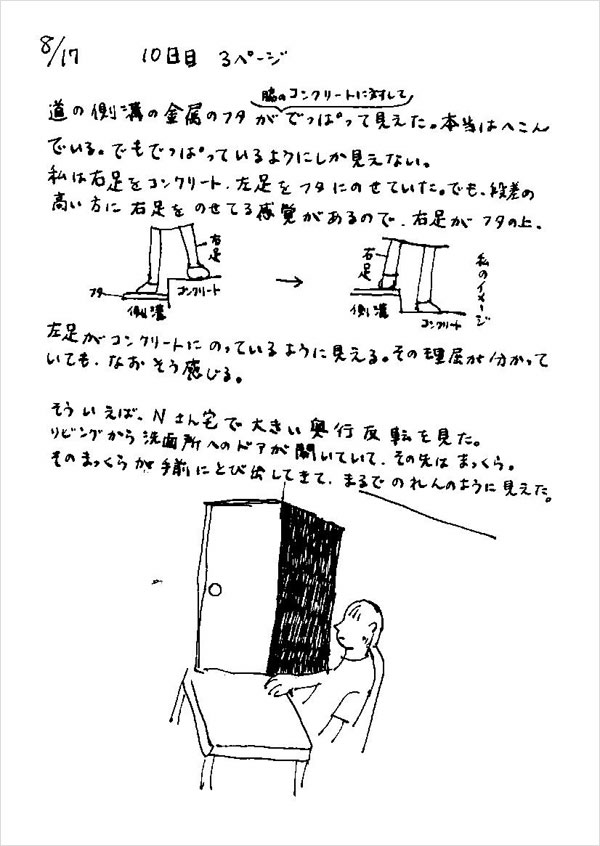 8/17 10日目 3ページ
脇のコンクリートに対して
道の側溝の金属のフタがでっぱって見えた。本当はへこん
でいる。でもでっぱっているようにしか見えない。
私は右足をコンクリート、左足をフタにのせていた。でも、段差の
高い方に右足をのせてる感覚があるので、右足がフタの上、
右足
フタ
側溝
コンクリート
→
右足
側溝
コンクリート
私のイメージ
左足がコンクリートにのっているように見える。その理屈が分かって
いても、なおそう感じる。
そういえば、Nさん宅で大きい奥行反転を見た。
リビングから洗面所へのドアが開いていて、その先はまっくら。
そのまっくらが手前にとび出してきて、まるでのれんのように見えた。